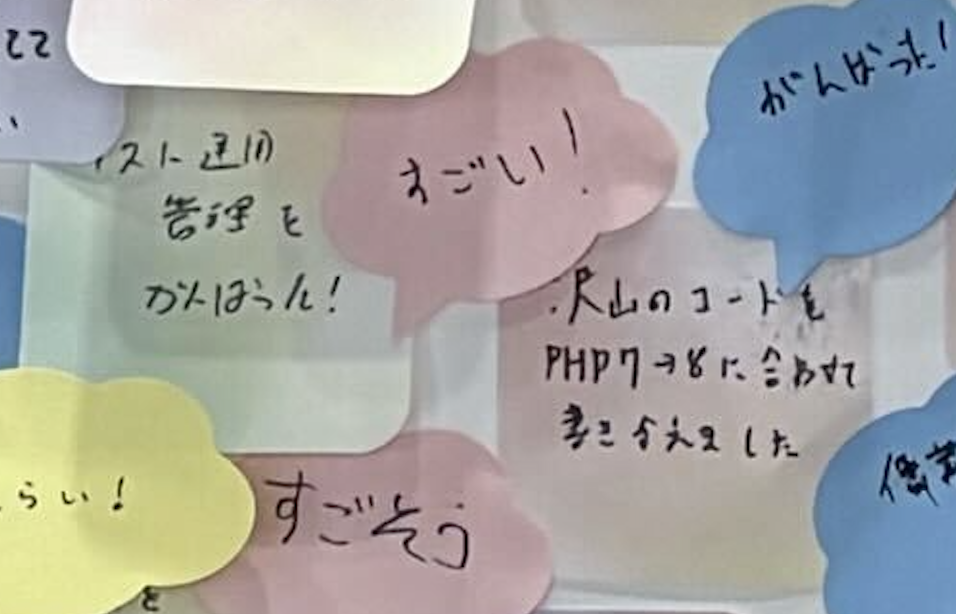 スト運用
管理を
がんばった!
すごい!
がんばった!
沢山のコードを
PHP7→8に合わせて
書きかえました
らい!
すごそう
を